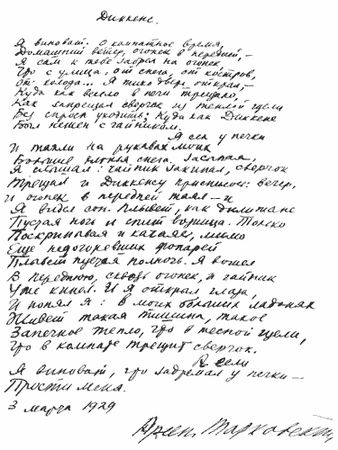 Диккенс.
Я виноват. О комнатное время,
Домашний ветер, огонек в передней, —
Я сам к тебе забрел на огонек,
с улицы, от снега, от костров,
От холода... Я тихо дверь открыл, —
Куда как весело в печи трещало,
Как запрещал сверчок из теплой щели
Без спроса уходить; Куда как Диккенс
Был нежен с чайником.
Я сел у печки
И таяли на рукавах моих
Большие хлопья снега. Засыпая,
Я слышал: чайник закипал, сверчок
Трещал и Диккенсу приснилось: вечер,
И огонек в передней таял — и
Я видел сон. Плывет, как дилижанс
Пустая ночь и спит возница. Только
Поскрипывая и качаясь, мимо
Еще недогоревших фонарей
Плывет пустая ночь. Я вошел
В переднюю, сквозь огонек, и чайник
Уже кипел. И я открыл глаза,
И понял я: в моих больших ладонях
Живет такая тишина, такое
Запечное тепло, что в тесной щели,
в комнате трещит сверчок.
сели
Я виноват, что задремал у печки —
Прости меня.
3 марта 1929
Арсен. Тарковский